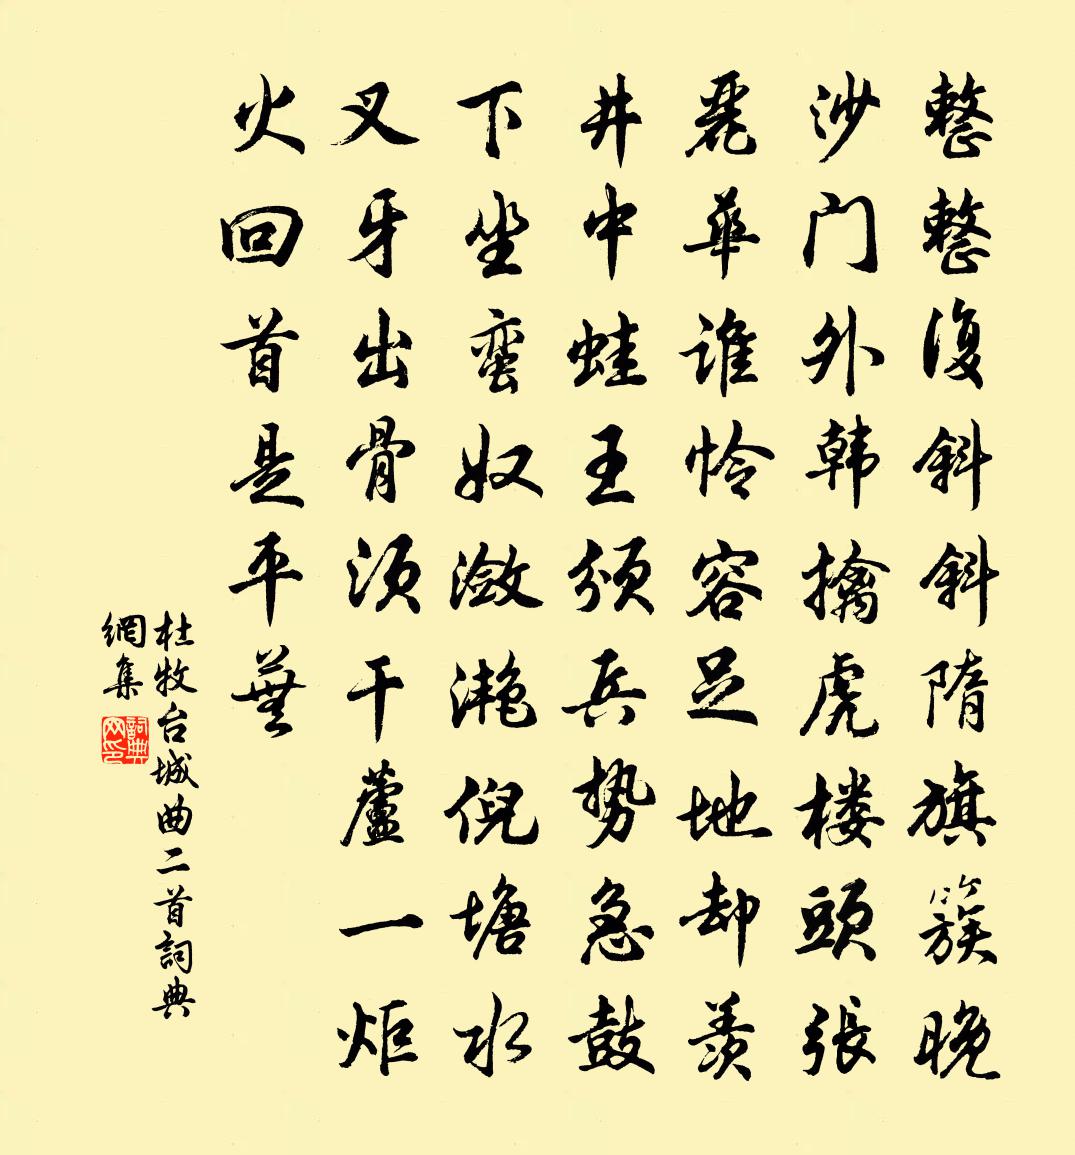 整整復斜斜隋旗簇晚
沙门外韩擒虎楼頭張
麗華谁怜容足地却羡
井中蛙王颁兵势急鼓
下坐蛮奴潋滟倪塘水
叉牙出骨须干蘆一炬
火回首是平蕪
杜牧台城曲二首詞典
網集
詞典
网印